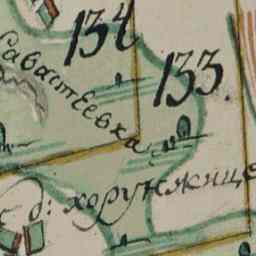 134
133.
Савастѣевка
с д: хорунжице